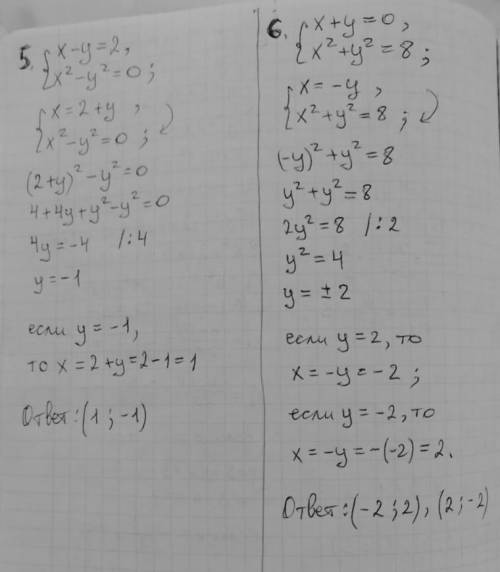 5. { x-y=2,
x²-y²=0;
{ x=2+y,
x²-y²=0;
(2+y)²-y²=0
4+4y+y²-y²=0
4y=-4 /:4
y=-1
если y=-1,
то x=2+y=2-1=1
Ответ:(1;-1)
6. { x+y=0,
x²+y²=8;
{ x=-y,
x²+y²=8;
(-y)²+y²=8
y²+y²=8
2y²=8 /:2
y²=4
y=±2
если y=2, то
x=-y=-2;
если y=-2, то
x=-y=-(-2)=2.
Ответ:(-2;2),(2;-2)